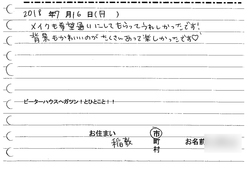 2018年7月16日(月)
メイクも希望通りにしてもらってうれしかったです!
背景もかわいいのがたくさんあって楽しかったです♡
ピーターハウスへガツン!とひとこと!!
お住まい
稲敷
市
町
村
お名前